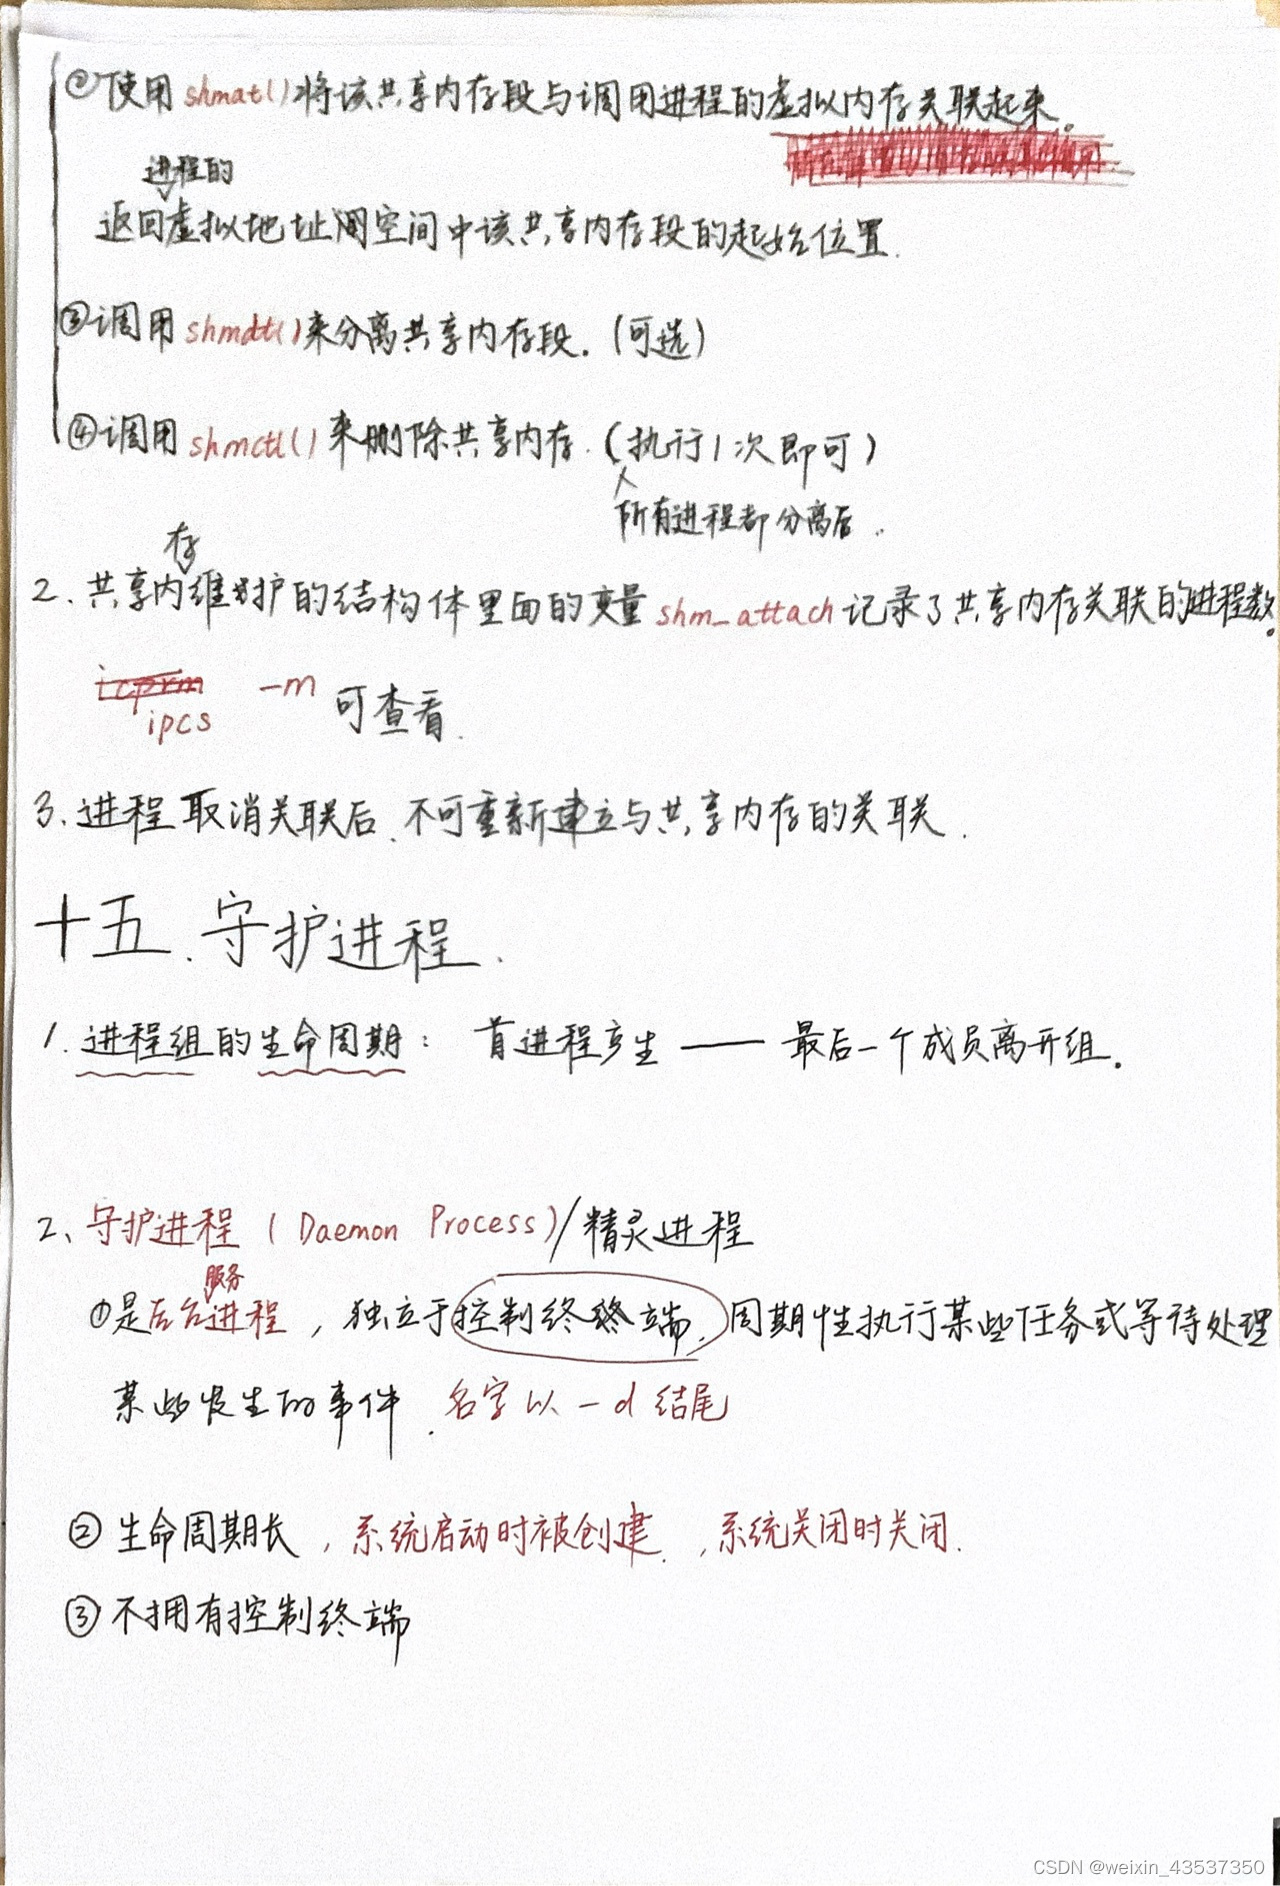 ②使用shmat()将该共享内存段与调用进程的虚拟内存关联起来。
进程的
返回虚拟地址空间中该共享内存段的起始位置.
③调用shmdt()来分离共享内存段.(可选)
④调用shmctl()来删除共享内存.(执行1次即可)
所有进程都分离后.
存
2.共享内维护的结构体里面的变量shm_attach记录了共享内存关联的进程数.
icprm -m 可查看.
ipcs
3.进程取消关联后.不可重新建立与共享内存的关联.
十五.守护进程.
1.进程组的生命周期:首进程产生——最后一个成员离开组.
2、守护进程(Daemon Process)/精灵进程
服务
①是后台进程,独立于控制终端.周期性执行某些任务或等待处理
某些发生的事件.名字以-d结尾
②生命周期长,系统启动时被创建.,系统关闭时关闭.
③不拥有控制终端
CSDN @weixin_43537350